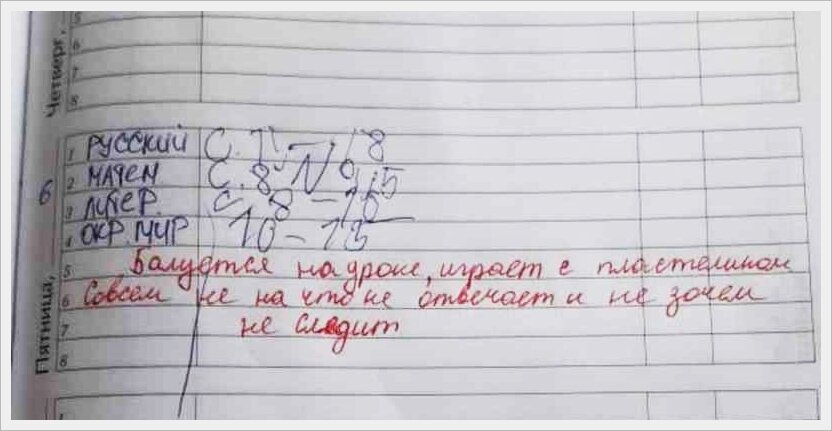 Четверг,
5
6
7
8
Пятница,
6
1 РУССКИЙ С.
2 МАТЕМ С. 8 N
3 ЛИТЕР. С. 8 –
4 ОКР. МИР 10 – 13
5 Балуется на уроке, играет с пластелином
6 Совсем не на что не отвечает и не зочем
7 не следит
8
1